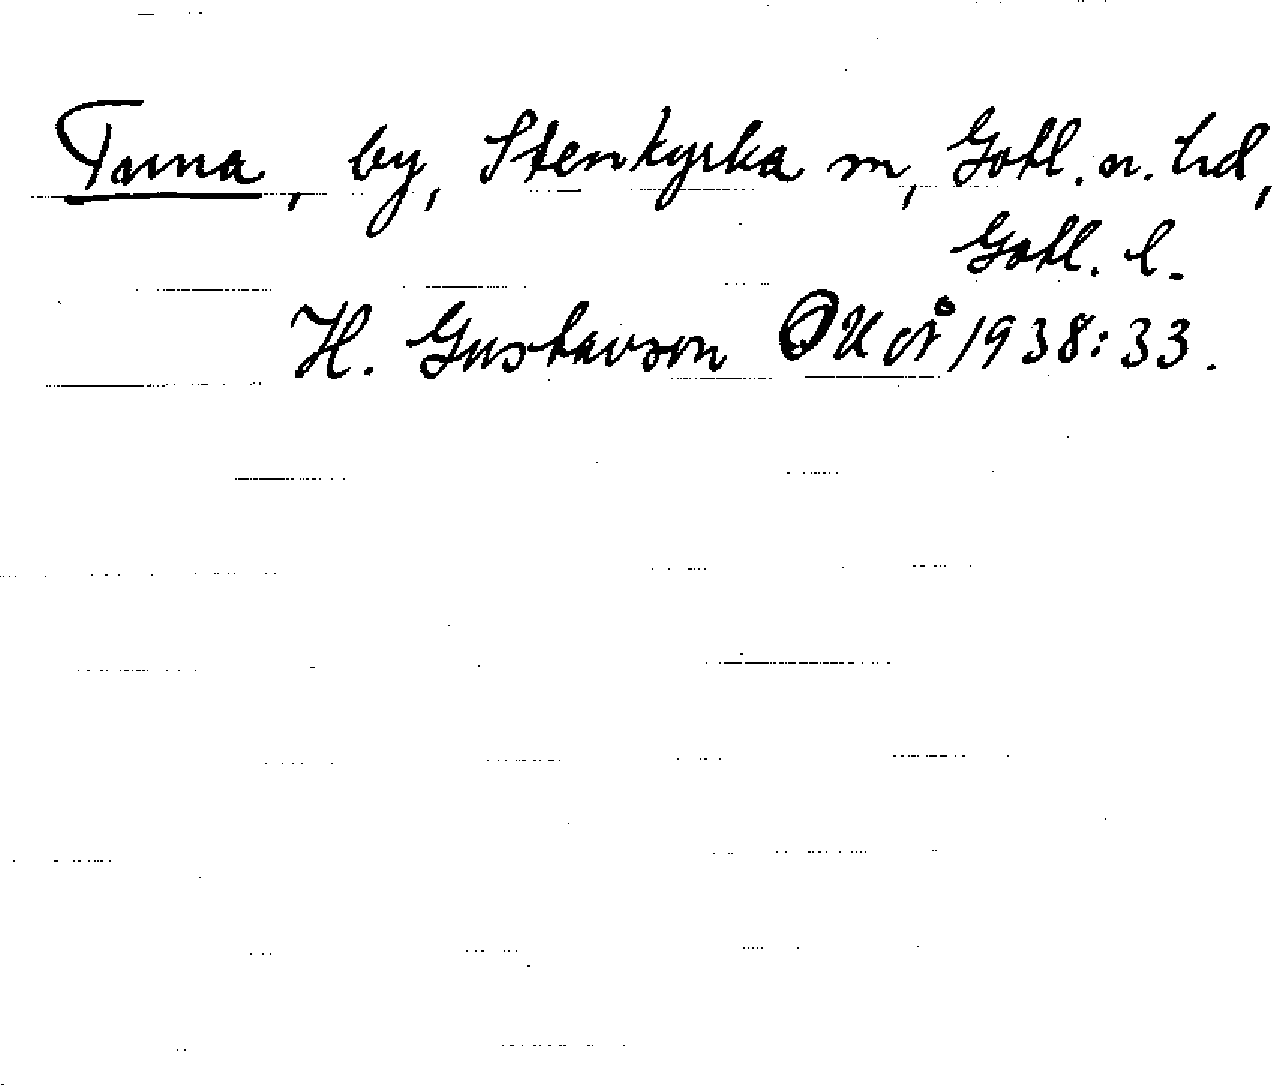 Tuna, by, Stenkyrka sn, Gotl. n. hd,
Gotl. l.
H. Gustavson OUÅ 1938:33.